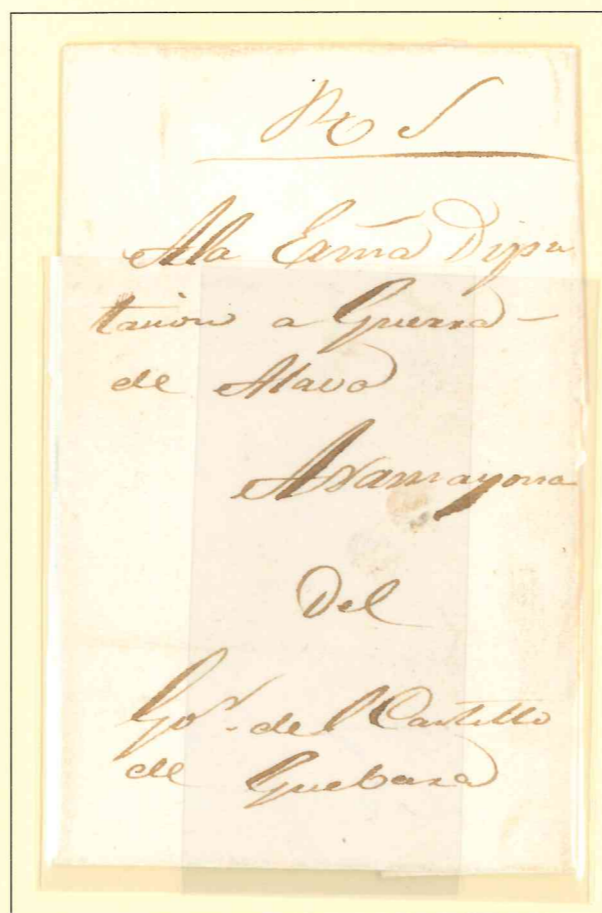 R S
Ala Exma Dipu
tacion a Guerra -
de Alava
Aramayona
Del
Gor. del Castillo
de Guebara